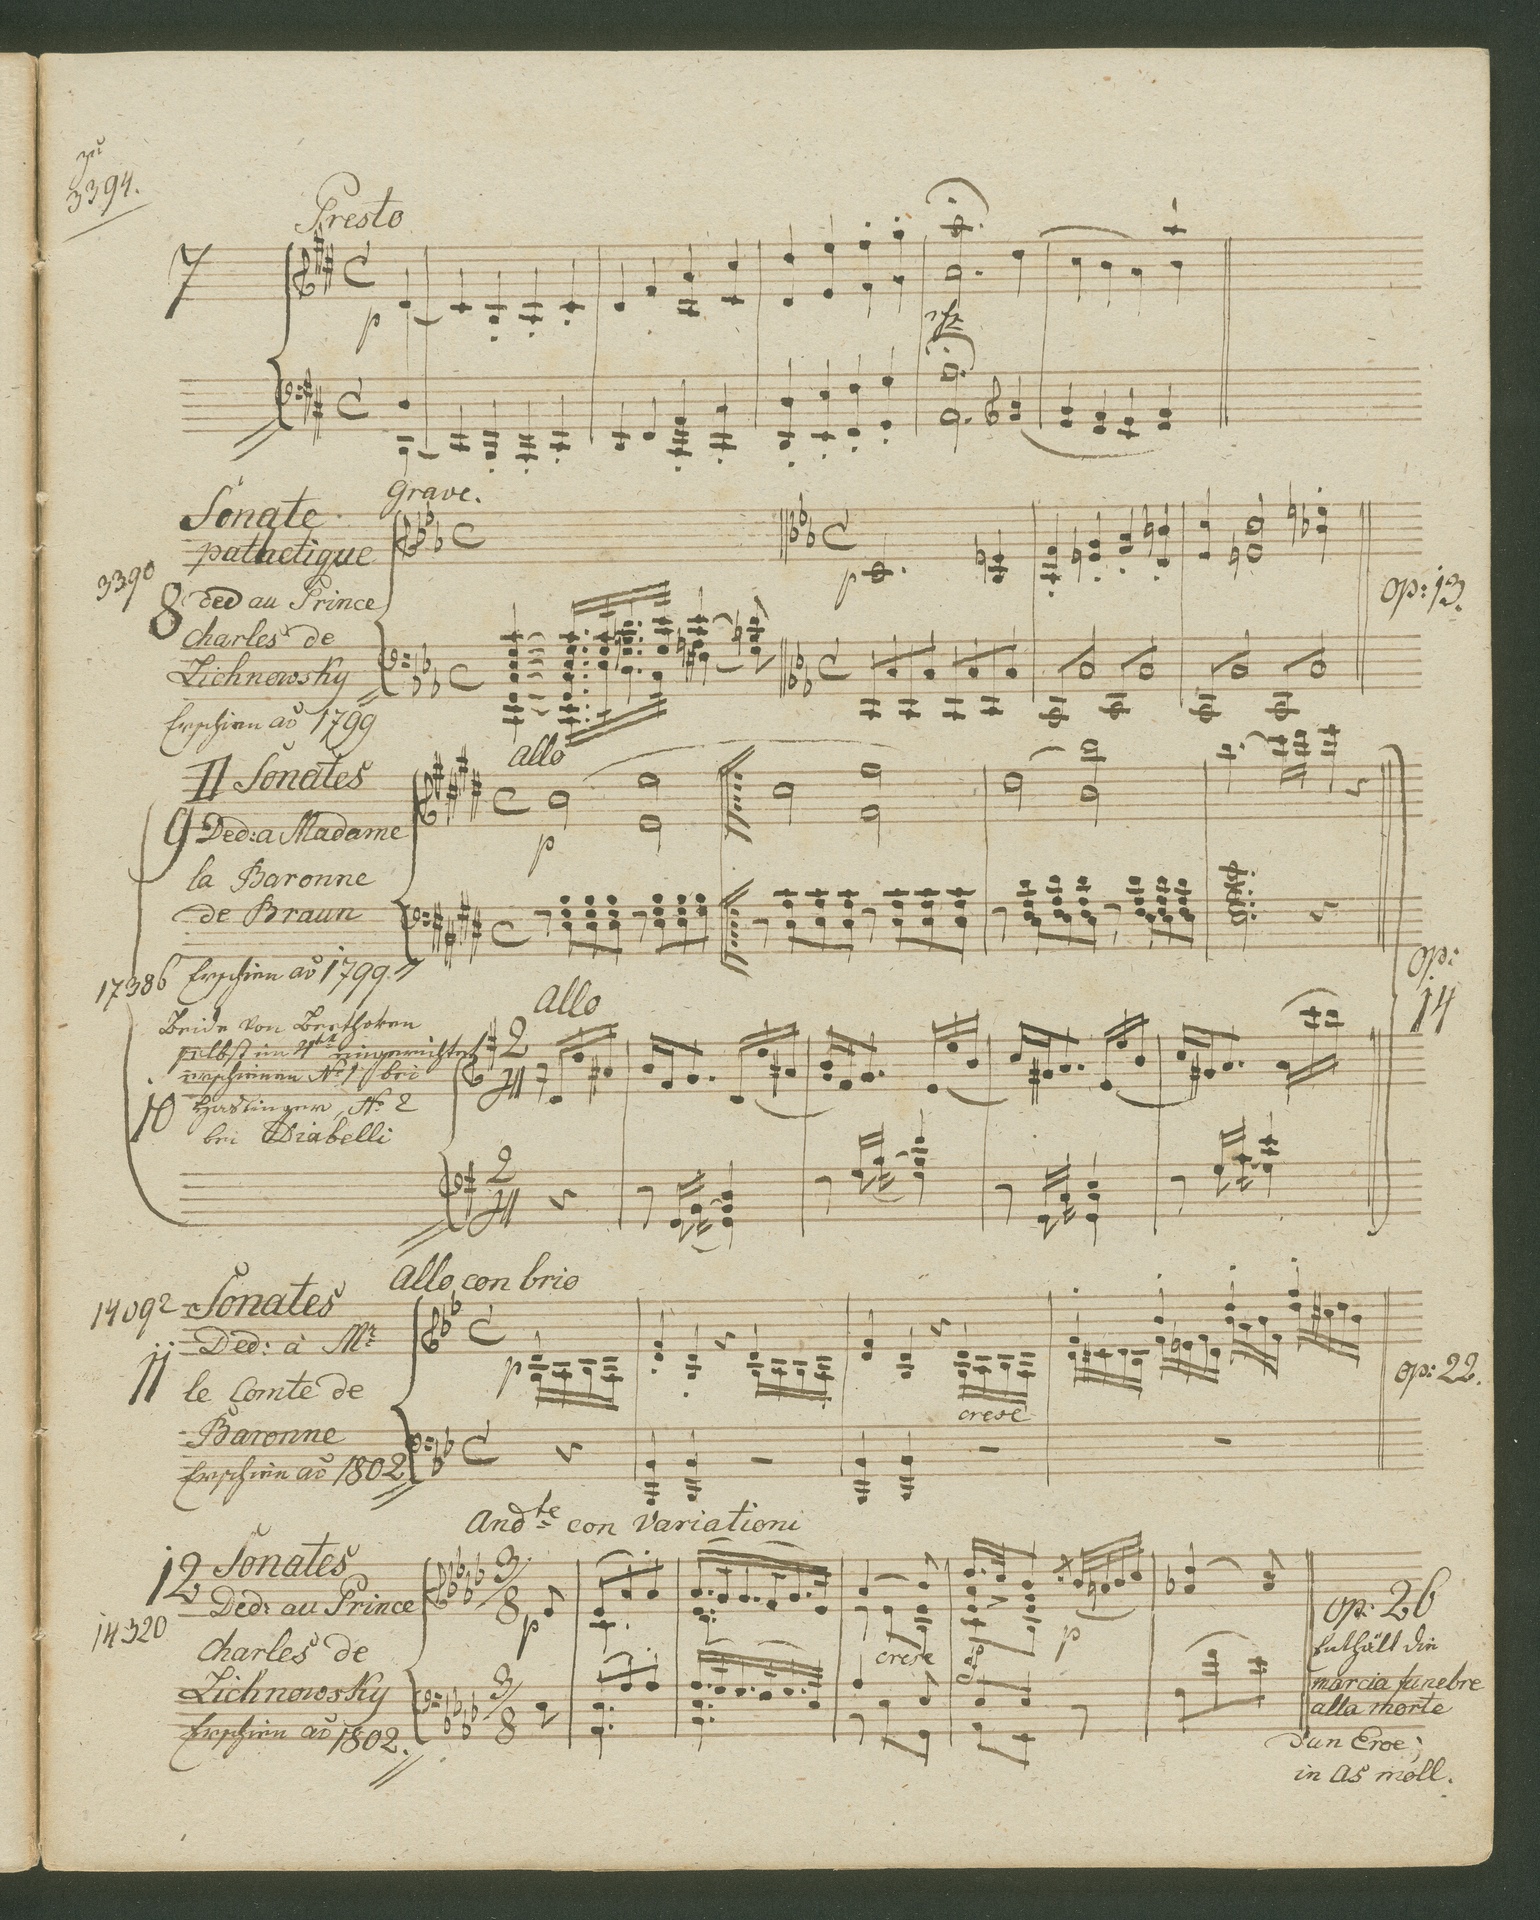 zu
3394.
Presto
7
p
rfz
Grave.
Sonate
pathetique
3390
8 ded au Prince
Charles de
Lichnowsky
Erschien ao 1799
p
op: 13.
allo
II Sonates
9 Ded: a Madame
la Baronne
de Braun
17386 Erschien ao 1799.
p
op:
14
Allo
Beide von Beethoven
selbst im 4tet eingerichtet
erschienen No 1 bei
10 Haslinger, No. 2
bei Diabelli
2
4
2
4
Allo con brio
14092 Sonates
11 Ded: à Mr
le Comte de
Baronne
Erschien ao 1802
p
cresc
op: 22.
Andte con Variationi
12 Sonates
Ded: au Prince
14320
Charles de
Lichnowsky
Erschien ao 1802.
3/8
3/8
p
cresc
p
op: 26
Enthält die
marcia funebre
alla morte
d'un Eroe;
in As moll.